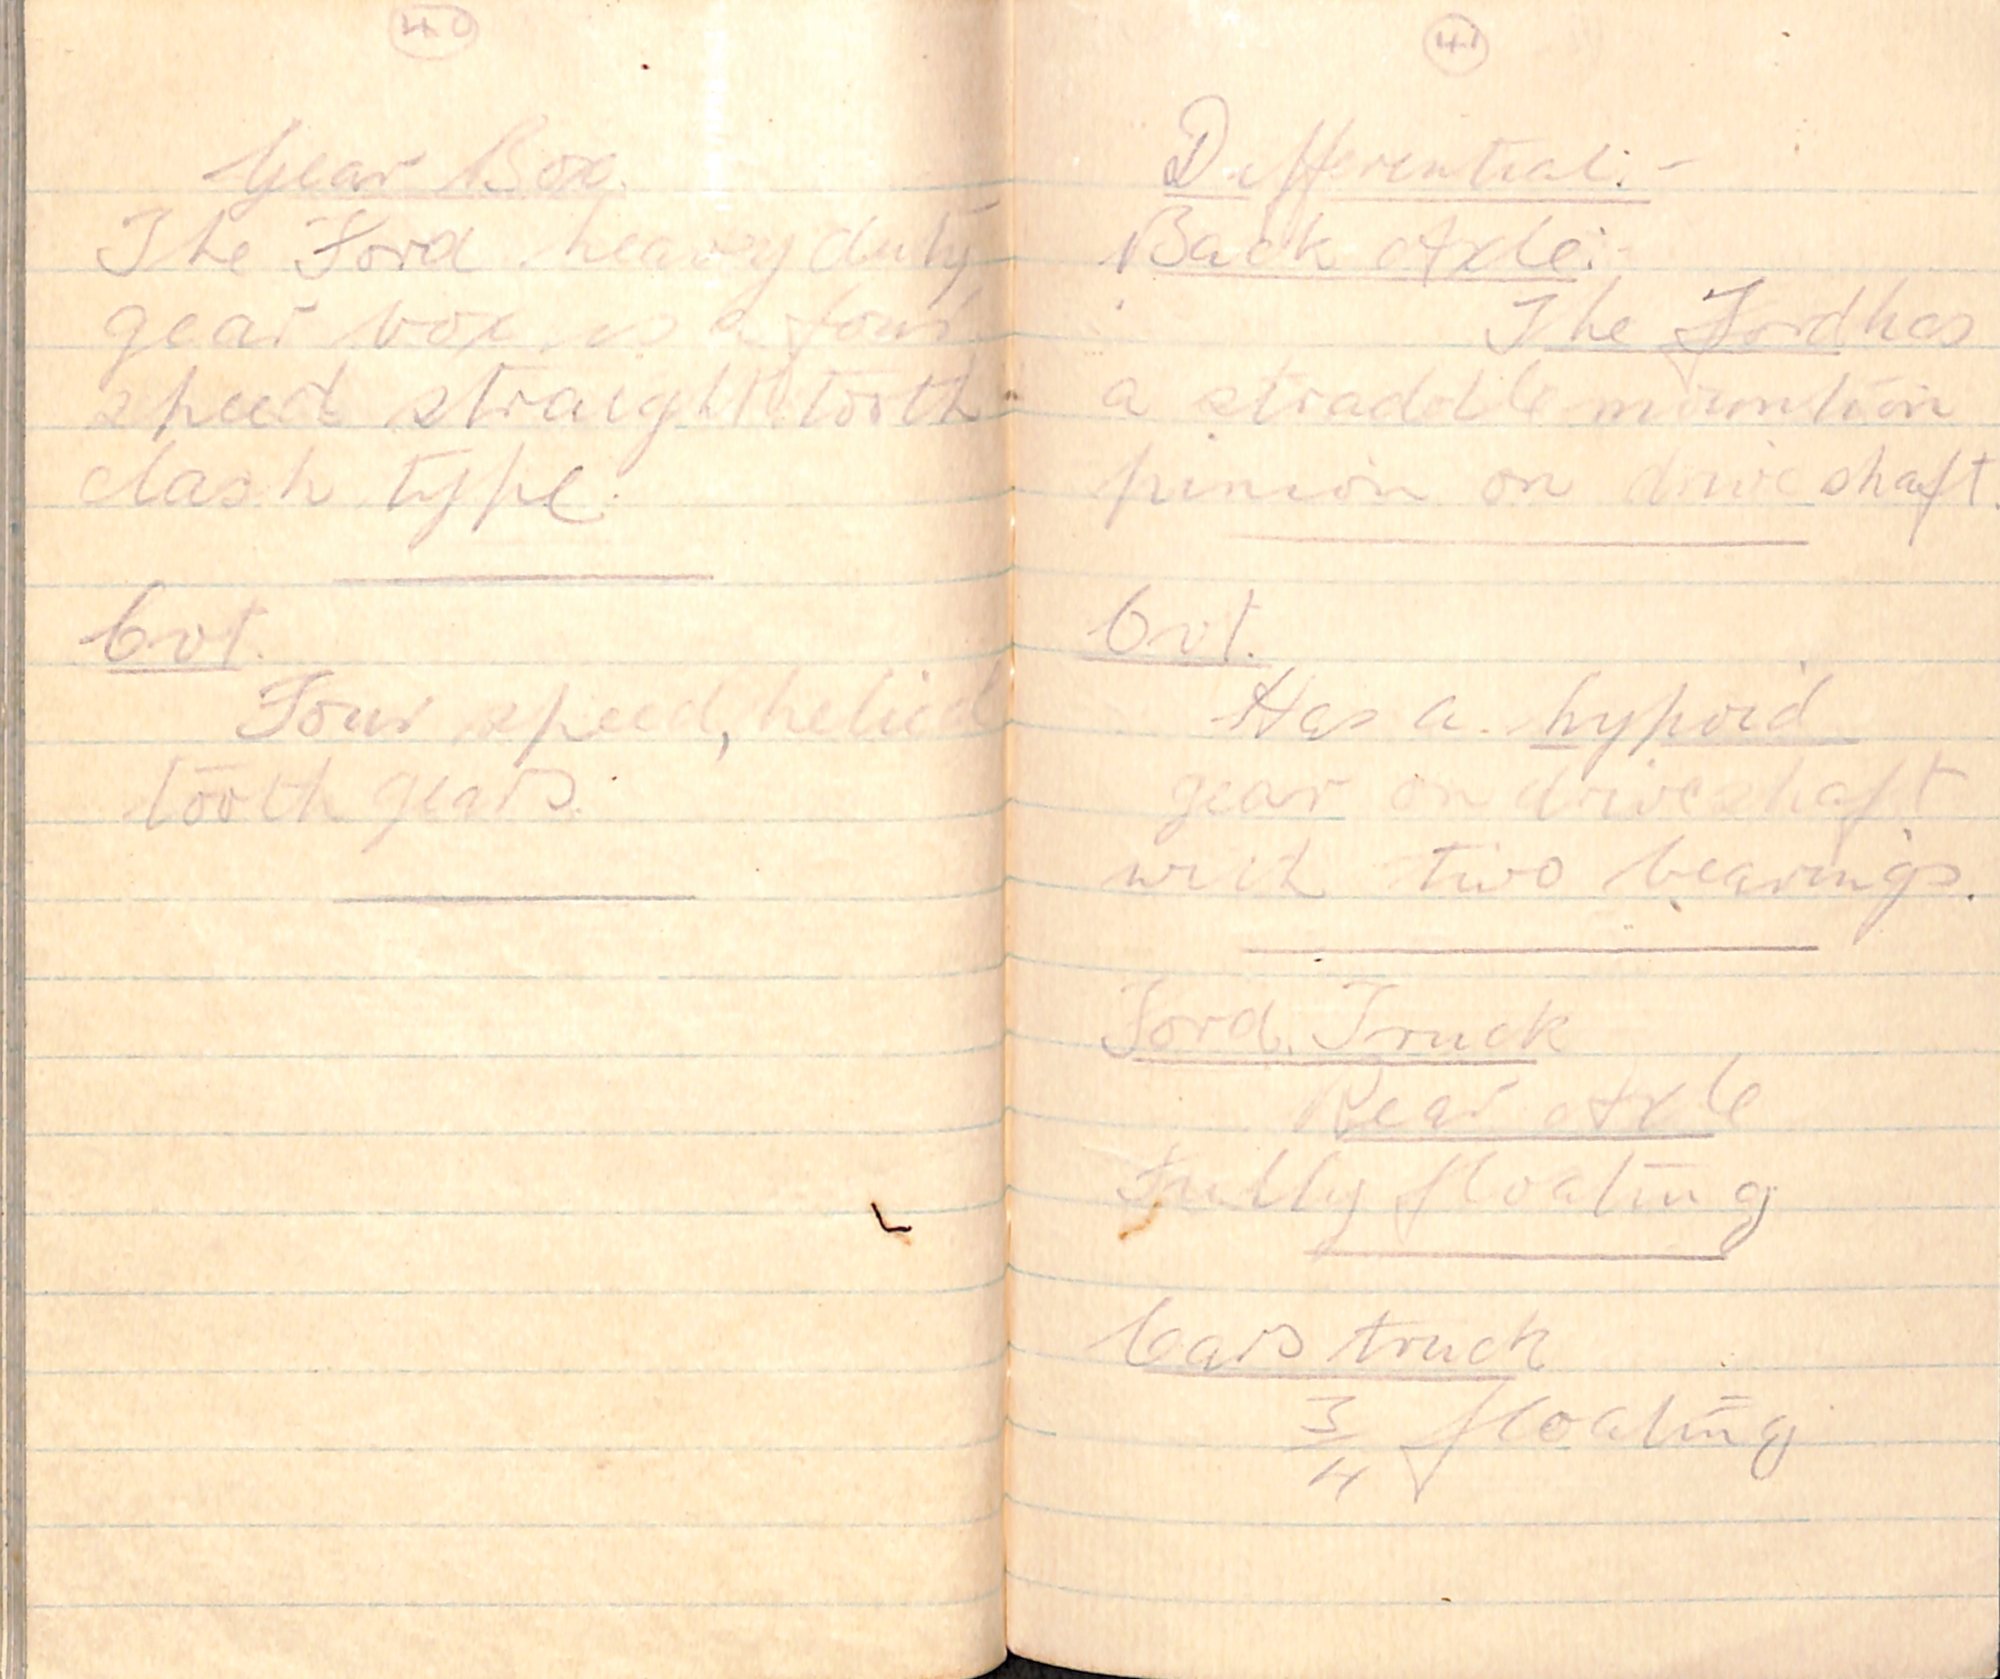 40
Gear Box.
The Ford heavy duty
gear box is a four
speed straight tooth
clash type.
Cvt.
Four speed, helicd
tooth gears.
41
Differential:-
Back Axle:-
The Ford has
a straddle mountion
pinion on drive shaft.
Cvt.
Has a hypoid
gear on driveshaft
with two bearings.
Ford Truck
Rear Axle
Fully floating
Cars truck
3/4 floating